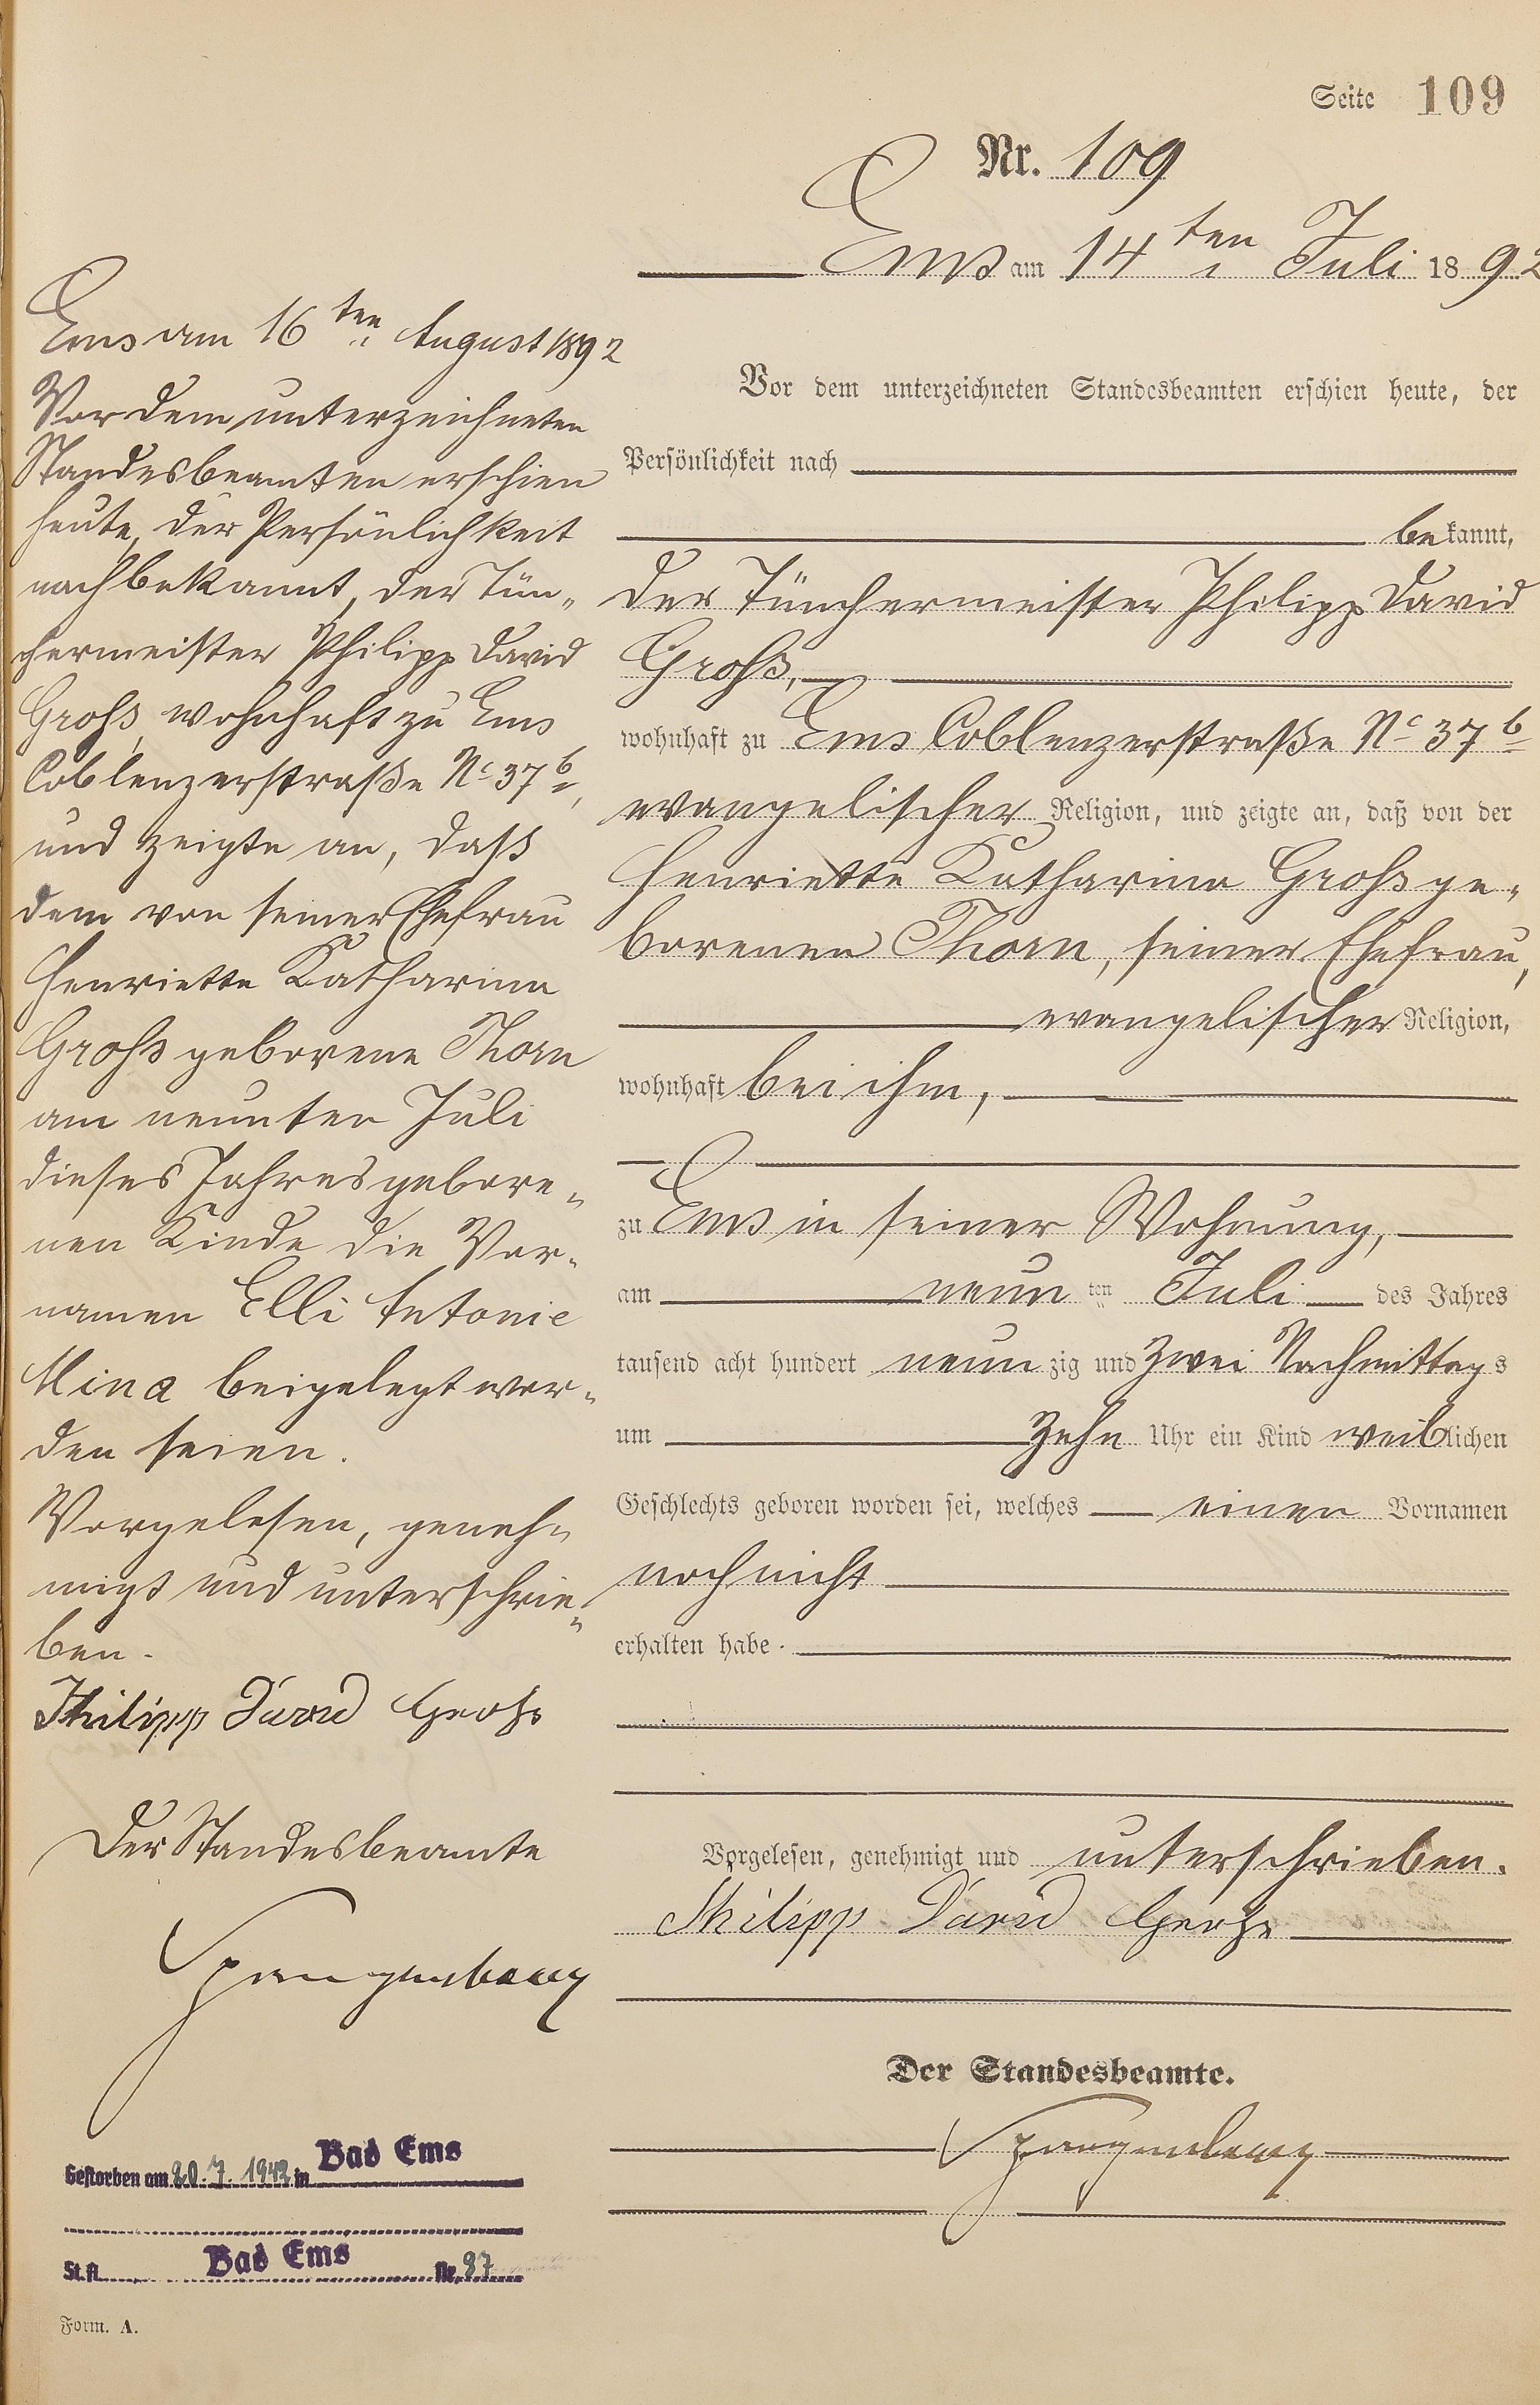 Seite 109
Nr. 109
Ems am 14ten Juli 1892
Vor dem unterzeichneten Standesbeamten erschien heute, der
Persönlichkeit nach
bekannt,
der Tünchermeister Philipp David
Groß,
wohnhaft zu Ems Coblenzerstraße No 37b
evangelischer Religion, und zeigte an, daß von der
Henriette Katharina Groß ge-
borenen Thorn, seiner Ehefrau,
evangelischer Religion,
wohnhaft bei ihm,
zu Ems in seiner Wohnung,
am neunten Juli des Jahres
tausend acht hundert neunzig und zwei Nachmittags
um zehn Uhr ein Kind weiblichen
Geschlechts geboren worden sei, welches einen Vornamen
noch nicht
erhalten habe.
Vorgelesen, genehmigt und unterschrieben.
Philipp David Groß
Der Standesbeamte.
Spangenberg
Ems am 16ten August 1892
Vor dem unterzeichneten
Standesbeamten erschien
heute, der Persönlichkeit
nach bekannt, der Tün-
chermeister Philipp David
Groß, wohnhaft zu Ems
Coblenzerstraße No 37b,
und zeigte an, daß
dem von seiner Ehefrau
Henriette Katharina
Groß geborene Thorn
am neunten Juli
dieses Jahres gebore-
nen Kinde die Vor-
namen Elli Antonie
Mina beigelegt wor-
den seien.
Vorgelesen, geneh-
migt und unterschrie-
ben.
Philipp David Groß
Der Standesbeamte
Spangenberg
Gestorben am 20.7.1942 in Bad Ems
St.A. Bad Ems Nr. 87
Form. A.